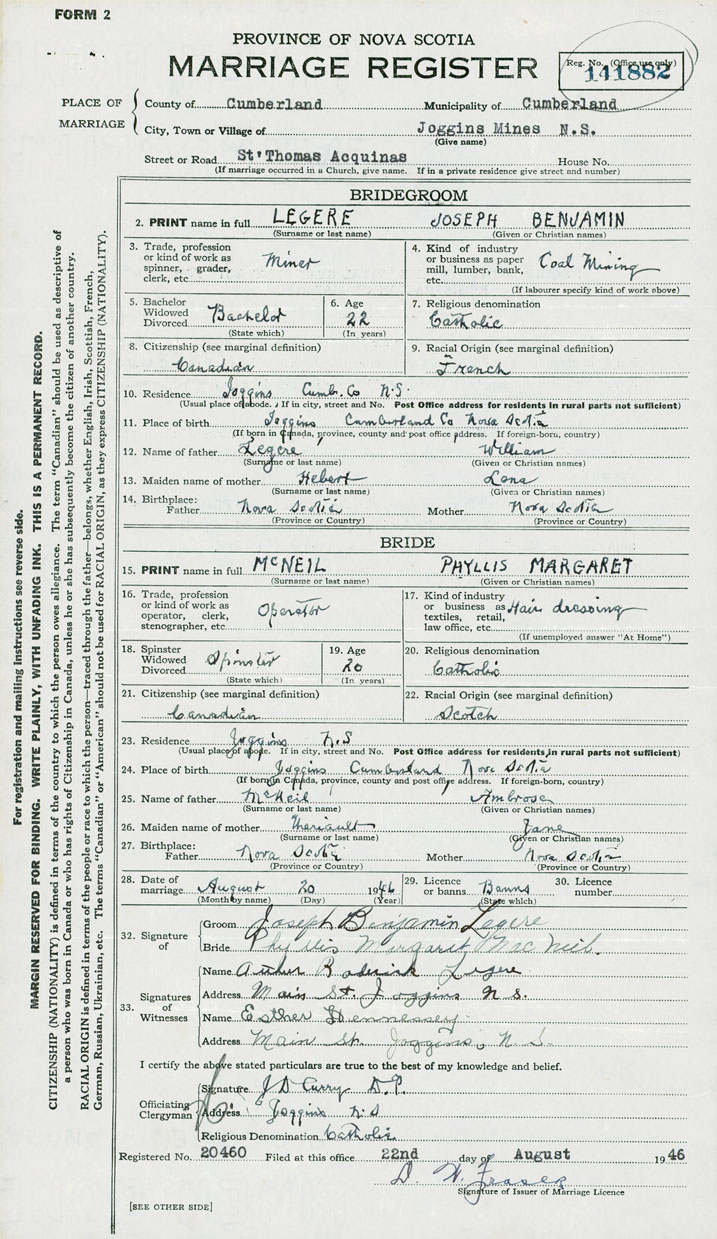 FORM 2
PROVINCE OF NOVA SCOTIA
MARRIAGE REGISTER
Reg. No. (Office use only)
141882
PLACE OF MARRIAGE
County of Cumberland Municipality of Cumberland
City, Town or Village of Joggins Mines N.S.
(Give name)
Street or Road St'Thomas Acquinas House No.
(If marriage occurred in a Church, give name. If in a private residence give street and number)
BRIDEGROOM
2. PRINT name in full LEGERE JOSEPH BENJAMIN
(Surname or last name) (Given or Christian names)
3. Trade, profession or kind of work as spinner, grader, clerk, etc. Miner
4. Kind of industry or business as paper mill, lumber, bank, etc. Coal Mining
(If labourer specify kind of work above)
5. Bachelor Widowed Divorced Bachelor
(State which)
6. Age 22
(In years)
7. Religious denomination
Catholic
8. Citizenship (see marginal definition)
Canadian
9. Racial Origin (see marginal definition)
French
10. Residence Joggins Cumb. Co N.S.
(Usual place of abode. If in city, street and No. Post Office address for residents in rural parts not sufficient)
11. Place of birth Joggins Cumberland Co Nova Scotia
(If born in Canada, province, county and post office address. If foreign-born, country)
12. Name of father Legere William
(Surname or last name) (Given or Christian names)
13. Maiden name of mother Hebert Lena
(Surname or last name) (Given or Christian names)
14. Birthplace:
Father Nova Scotia Mother Nova Scotia
(Province or Country) (Province or Country)
BRIDE
15. PRINT name in full McNEIL PHYLLIS MARGARET
(Surname or last name) (Given or Christian names)
16. Trade, profession or kind of work as operator, clerk, stenographer, etc. Operator
17. Kind of industry or business as textiles, retail, law office, etc. Hair dressing
(If unemployed answer "At Home")
18. Spinster Widowed Divorced Spinster
(State which)
19. Age 20
(In years)
20. Religious denomination
Catholic
21. Citizenship (see marginal definition)
Canadian
22. Racial Origin (see marginal definition)
Scotch
23. Residence Joggins N.S
(Usual place of abode. If in city, street and No. Post Office address for residents in rural parts not sufficient)
24. Place of birth Joggins Cumberland Nova Scotia
(If born in Canada, province, county and post office address. If foreign-born, country)
25. Name of father McNeil Ambrose
(Surname or last name) (Given or Christian names)
26. Maiden name of mother Theriault Jane
(Surname or last name) (Given or Christian names)
27. Birthplace:
Father Nova Scotia Mother Nova Scotia
(Province or Country) (Province or Country)
28. Date of marriage August 20 1946
(Month by name) (Day) (Year)
29. Licence or banns Banns
(State which)
30. Licence number
32. Signature of
Groom Joseph Benjamin Legere
Bride Phyllis Margaret MacNeil.
33. Signatures of Witnesses
Name Arther Roderick Legere
Address Main St. Joggins N.S.
Name Esther Hennessey.
Address Main St. Joggins, N.S.
I certify the above stated particulars are true to the best of my knowledge and belief.
Officiating Clergyman
Signature J D Curry D.P.
Address Joggins N.S
Religious Denomination Catholic
Registered No. 20460 Filed at this office 22nd day of August 1946
D. W. Fraser
Signature of Issuer of Marriage Licence
[SEE OTHER SIDE]
For registration and mailing instructions see reverse side.
MARGIN RESERVED FOR BINDING. WRITE PLAINLY, WITH UNFADING INK. THIS IS A PERMANENT RECORD.
CITIZENSHIP (NATIONALITY) is defined in terms of the country to which the person owes allegiance. The term "Canadian" should be used as descriptive of
a person who was born in Canada or who has rights of Citizenship in Canada, unless he or she has subsequently become the citizen of another country.
RACIAL ORIGIN is defined in terms of the people or race to which the person—traced through the father—belongs, whether English, Irish, Scottish, French,
German, Russian, Ukrainian, etc. The terms "Canadian" or "American" should not be used for RACIAL ORIGIN, as they express CITIZENSHIP (NATIONALITY).